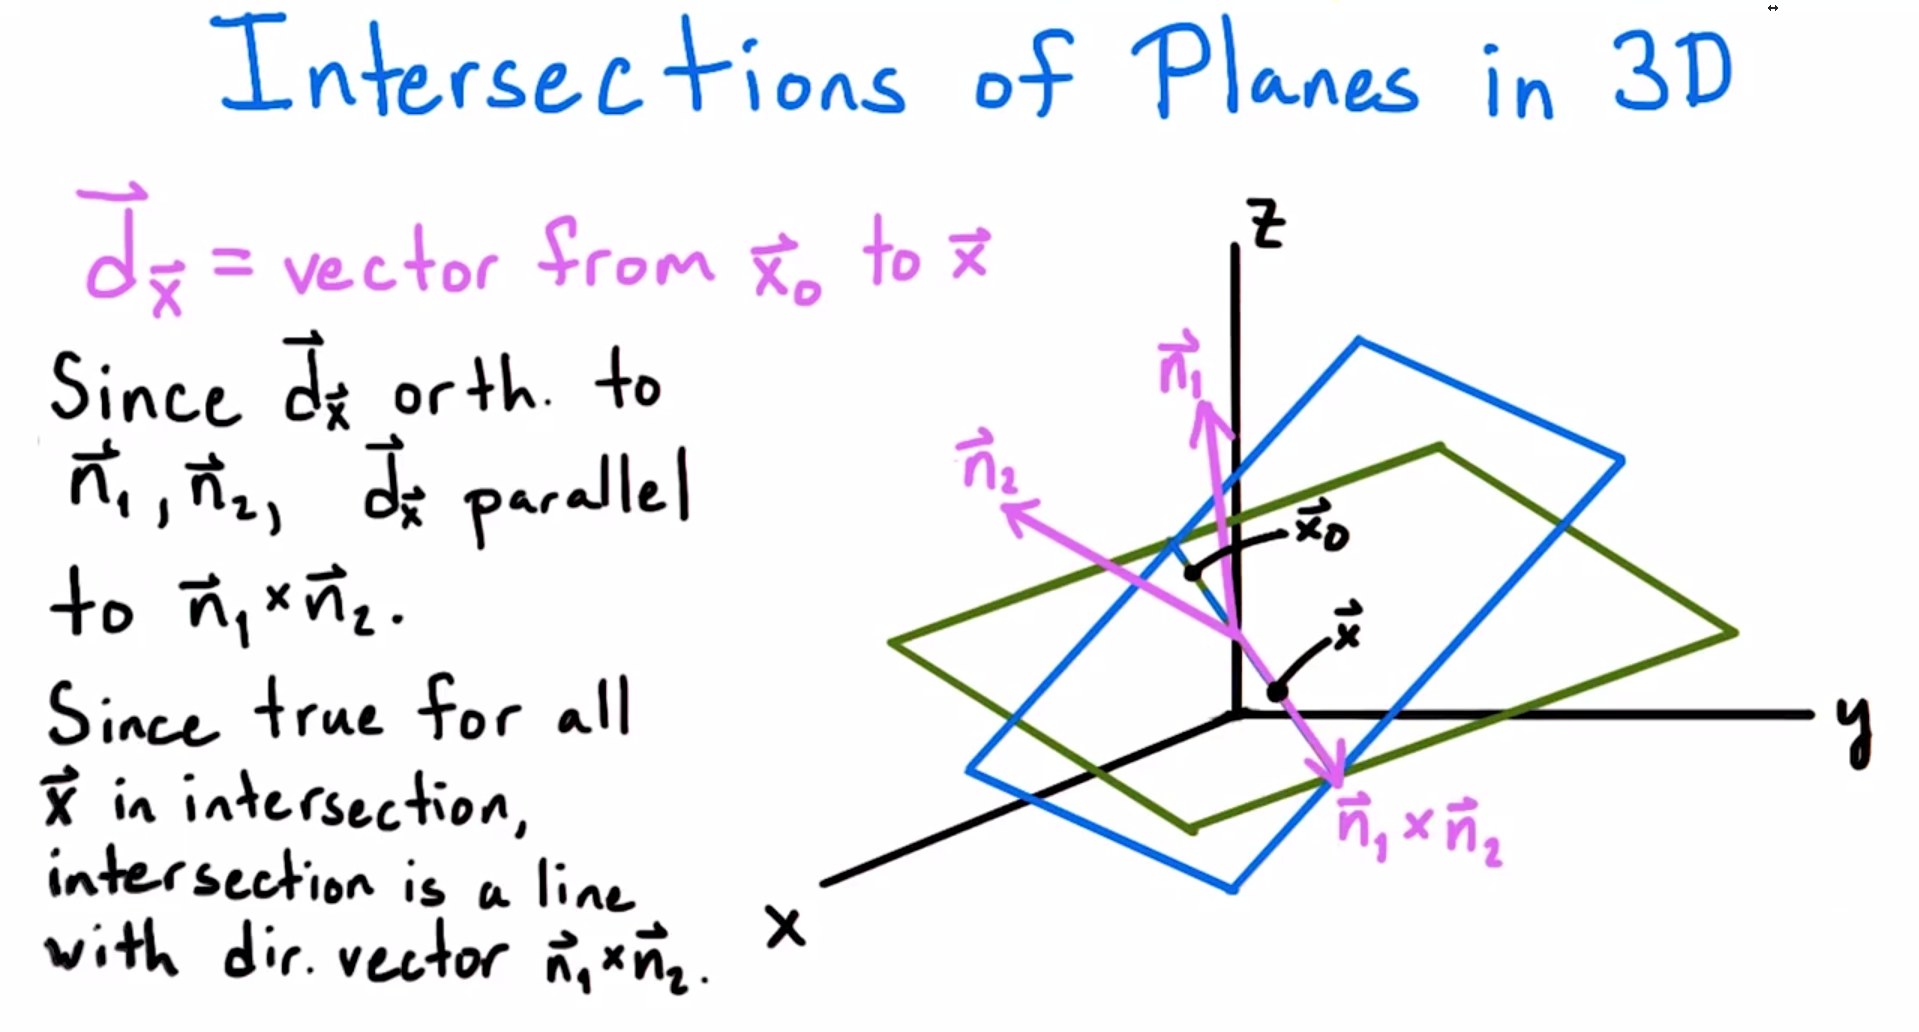 Intersections of Planes in 3D
d⃗ₓ⃗ = vector from x⃗₀ to x⃗
Since d⃗ₓ⃗ orth. to
n⃗₁, n⃗₂, d⃗ₓ⃗ parallel
to n⃗₁ × n⃗₂.
Since true for all
x⃗ in intersection,
intersection is a line
with dir. vector n⃗₁ × n⃗₂.
z
n⃗₁
n⃗₂
x⃗₀
x⃗
y
n⃗₁ × n⃗₂
x